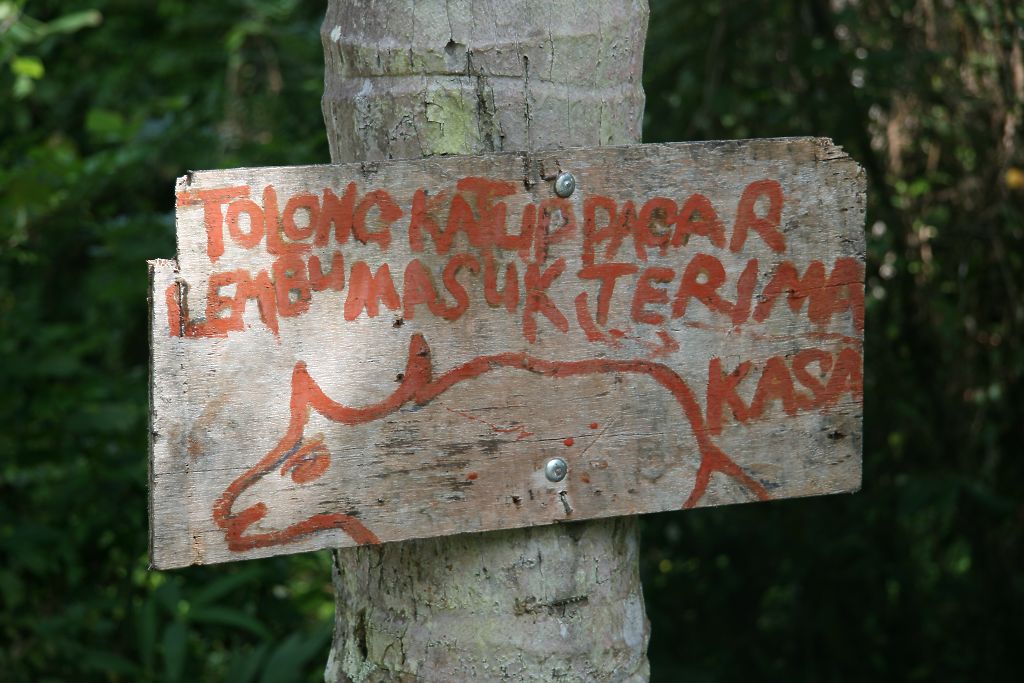 TOLONG KATUP PAGAR
LEMBU MASUK TERIMA
KASA